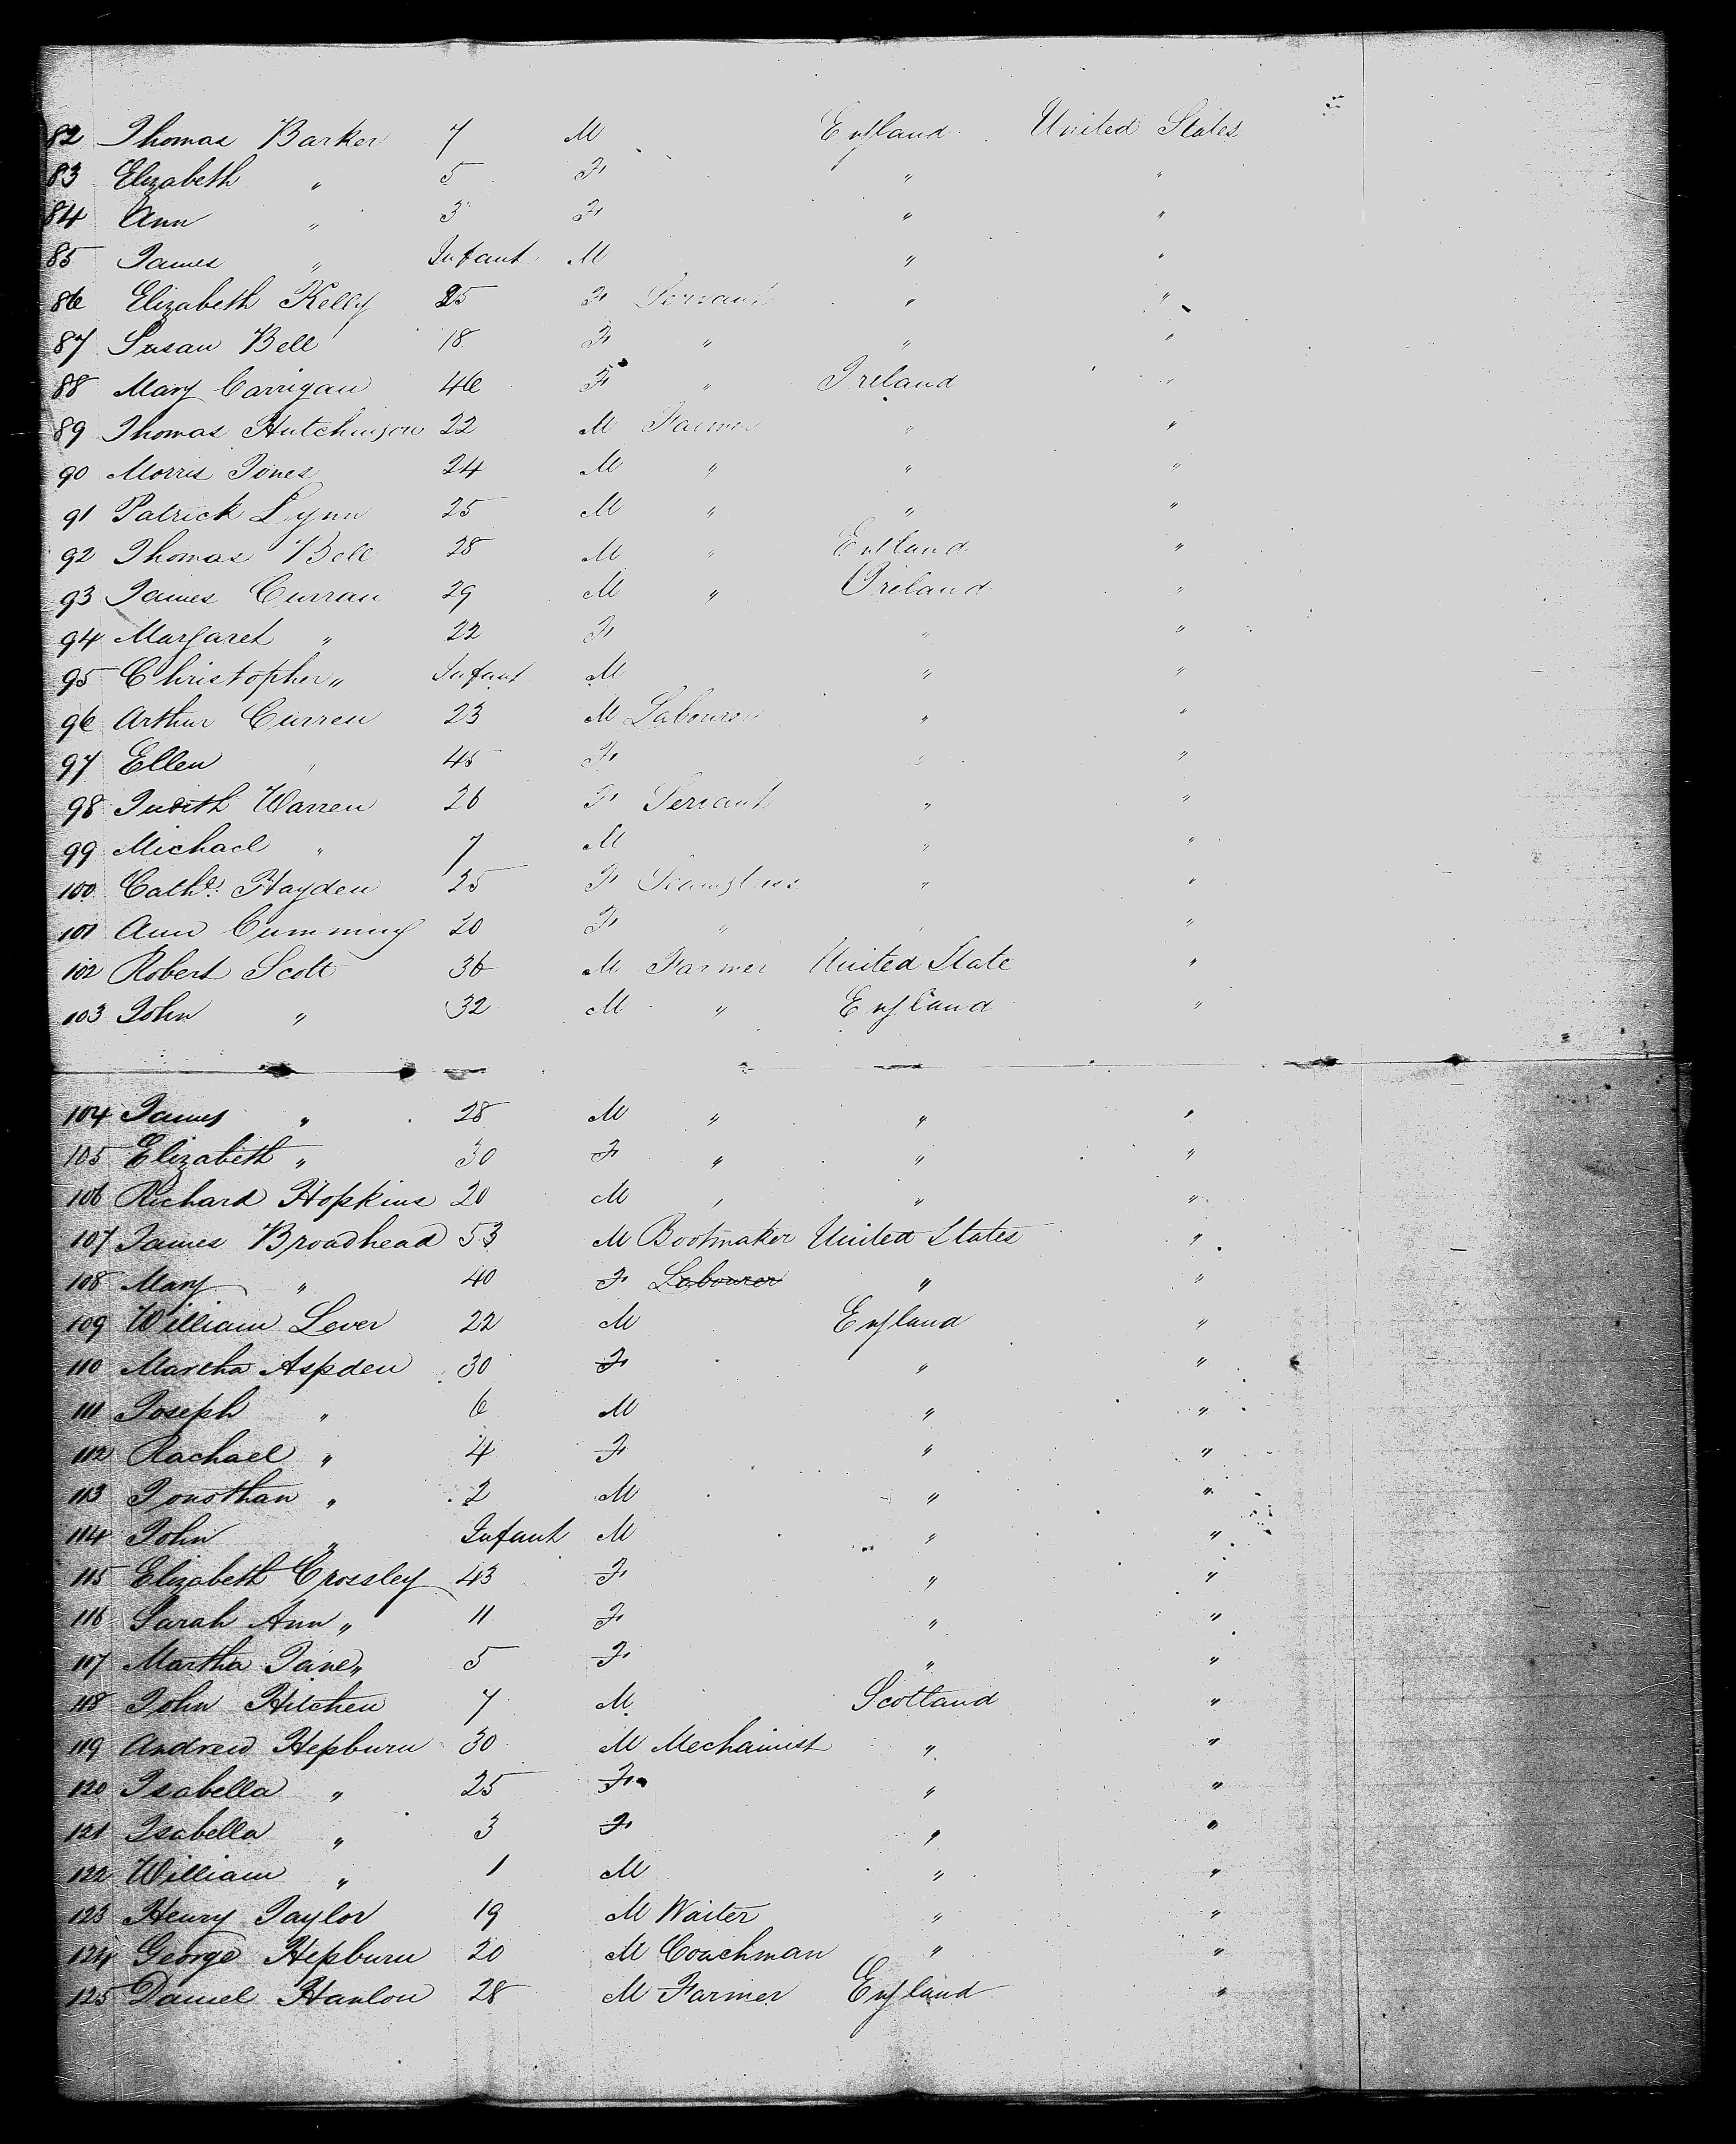 82 Thomas Barker 7 M England United States
83 Elizabeth " 5 F " "
84 Ann " 3 F " "
85 James " Infant M " "
86 Elizabeth Kelly 25 F Servant " "
87 Susan Bell 18 F " " "
88 Mary Carrigan 46 F " Ireland "
89 Thomas Hutchinson 22 M Farmer " "
90 Morris Jones 24 M " " "
91 Patrick Lynn 25 M " " "
92 Thomas Bell 28 M " England "
93 James Curran 29 M " Ireland "
94 Margaret " 22 F " "
95 Christopher " Infant M " "
96 Arthur Curren 23 M Labourer " "
97 Ellen " 45 F " "
98 Judith Warren 26 F Servant " "
99 Michael " 7 M " "
100 Cathe. Hayden 25 F " "
101 Ann Cumming 20 F " " "
102 Robert Scott 36 M Farmer United State "
103 John " 32 M " England "
104 James " 28 M " " "
105 Elizabeth " 30 F " " "
106 Richard Hopkins 20 M " " "
107 James Broadhead 53 M Bootmaker United States "
108 Mary " 40 F Labourer " "
109 William Lever 22 M England "
110 Martha Aspden 30 F " "
111 Joseph " 6 M " "
112 Rachael " 4 F " "
113 Jonothan " 2 M " "
114 John " Infant M " "
115 Elizabeth Crossley 43 F " "
116 Sarah Ann " 11 F " "
117 Martha Jane " 5 F " "
118 John Hitchen 7 M Scotland "
119 Andrew Hepburn 30 M Mechainist " "
120 Isabella " 25 F " "
121 Isabella " 3 F " "
122 William " 1 M " "
123 Henry Taylor 19 M Waiter " "
124 George Hepburn 20 M Coachman " "
125 Daniel Hanlon 28 M Farmer England "